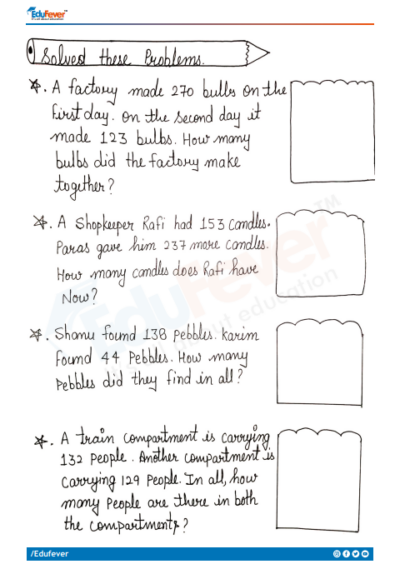 EduFever
Solved these Problems.
A factory made 270 bulbs on the
first day. On the second day it
made 123 bulbs. How many
bulbs did the factory make
together?
A Shopkeeper Rafi had 153 candles.
Paras gave him 237 more candles.
How many candles does Rafi have
Now?
Shanu found 138 Pebbles. Karim
Found 44 Pebbles. How many
Pebbles did they find in all?
A train compartment is carrying
132 People. Another compartment is
Carrying 129 People. In all, how
many People are there in both
the compartments?
EduFever
TM
about education
/Edufever